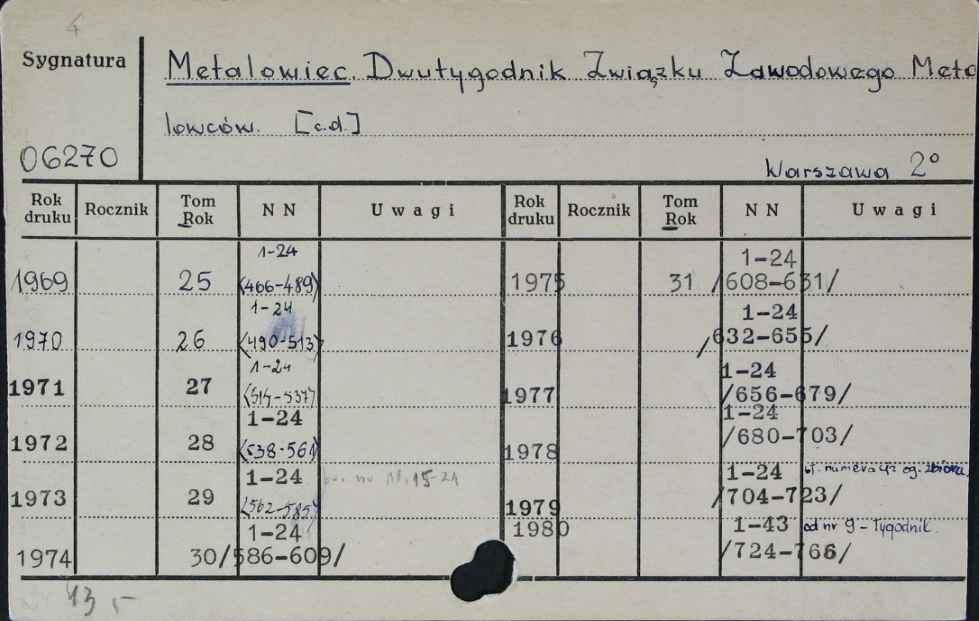 4
Sygnatura
Metalowiec. Dwutygodnik Związku Zawodowego Meta
lowców. [c.d.]
06270
Warszawa 2°
Rok druku Rocznik Tom Rok NN Uwagi Rok druku Rocznik Tom Rok NN Uwagi
1969 25 1-24 (466-489) 1975 31 1-24 /608-631/
1970 26 1-24 (490-513) 1976 1-24 /632-655/
1971 27 1-24 (514-537) 1977 1-24 /656-679/
1972 28 1-24 (538-561) 1978 1-24 /680-703/
1973 29 1-24 (562-585) nr 15-21 1979 1-24 /704-723/ numeracja og. zbioru
1974 30 1-24 /586-609/ 1980 1-43 /724-766/ od nr 9 - Tygodnik.
43,-